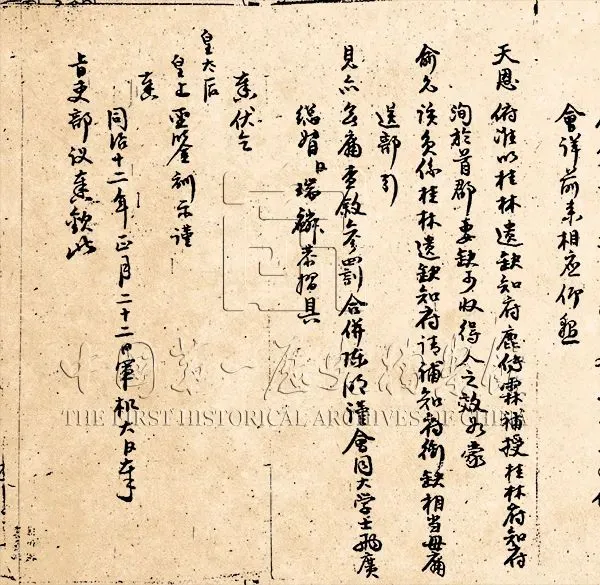 會詳前来相应仰懇
天恩俯准以桂林遺缺知府鹿傳霖補授桂林府知府
洵於首郡要缺可收得人之效如蒙
俞允该员係桂林遺缺知府请補知府銜缺相当毋庸
送部引
見亦毋庸查叙参罰合併陈明謹會同大学士两廣
総督臣瑞麟恭摺具
奏伏乞
皇太后
皇上聖鉴訓示謹
奏
同治十二年正月二十二日軍机大臣奉
旨吏部议奏钦此
中国第一历史档案馆
THE FIRST HISTORICAL ARCHIVES OF CHINA